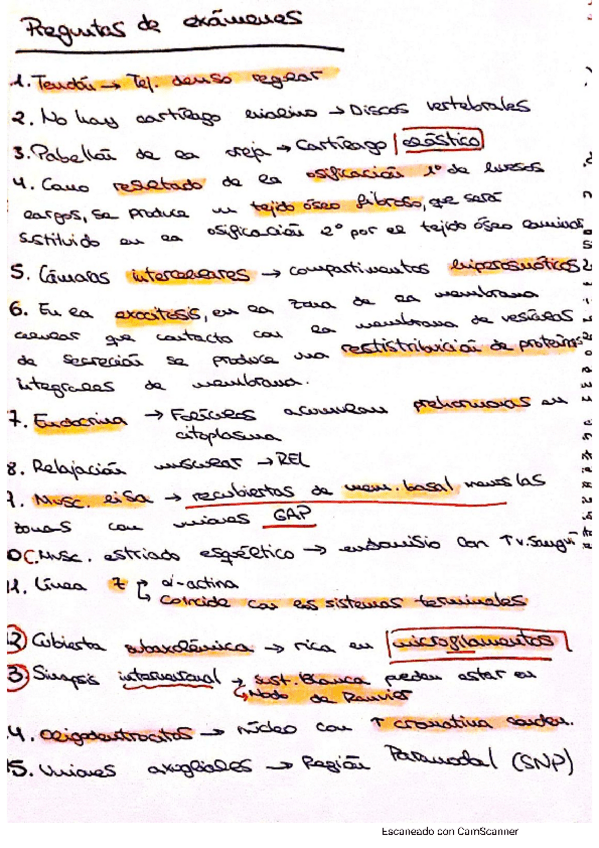 Preguntas de exámenes
1. Tendón → Tej. denso regular
2. No hay cartílago hialino → Discos vertebrales
3. Pabellón de la oreja → Cartílago elástico
4. Como resultado de la osificación 1º de huesos
largos, se produce un tejido óseo fibroso, que será
sustituido en la osificación 2º por el tejido óseo laminar
5. Cámaras intercelulares → compartimentos hiperosmóticos
6. En la exocitosis, en la zona de la membrana
celular que contacta con la membrana de vesículas
de secreción se produce una restistribución de proteínas
integrales de membrana.
7. Endocrina → Folículos acumulan prehormonas en
citoplasma
8. Relajación muscular → REL
9. Musc. lisa → recubiertas de mem. basal menos las
zonas con uniones GAP
10 C. Musc. estriado esquelético → endomisio con T v. sangui
11. Línea Z → α-actina
↳ Coincide con los sistemas terminales
12 Cubierta subaxolémica → rica en microfilamentos
13 Sinapsis interneuronal → Sust. blanca pueden estar en
↳ Nodo de Ranvier
14. Oligodentrocitos → núcleo con ↑ cromatina conden.
15. Uniones axogliales → Región Paranodal (SNP)
Escaneado con CamScanner